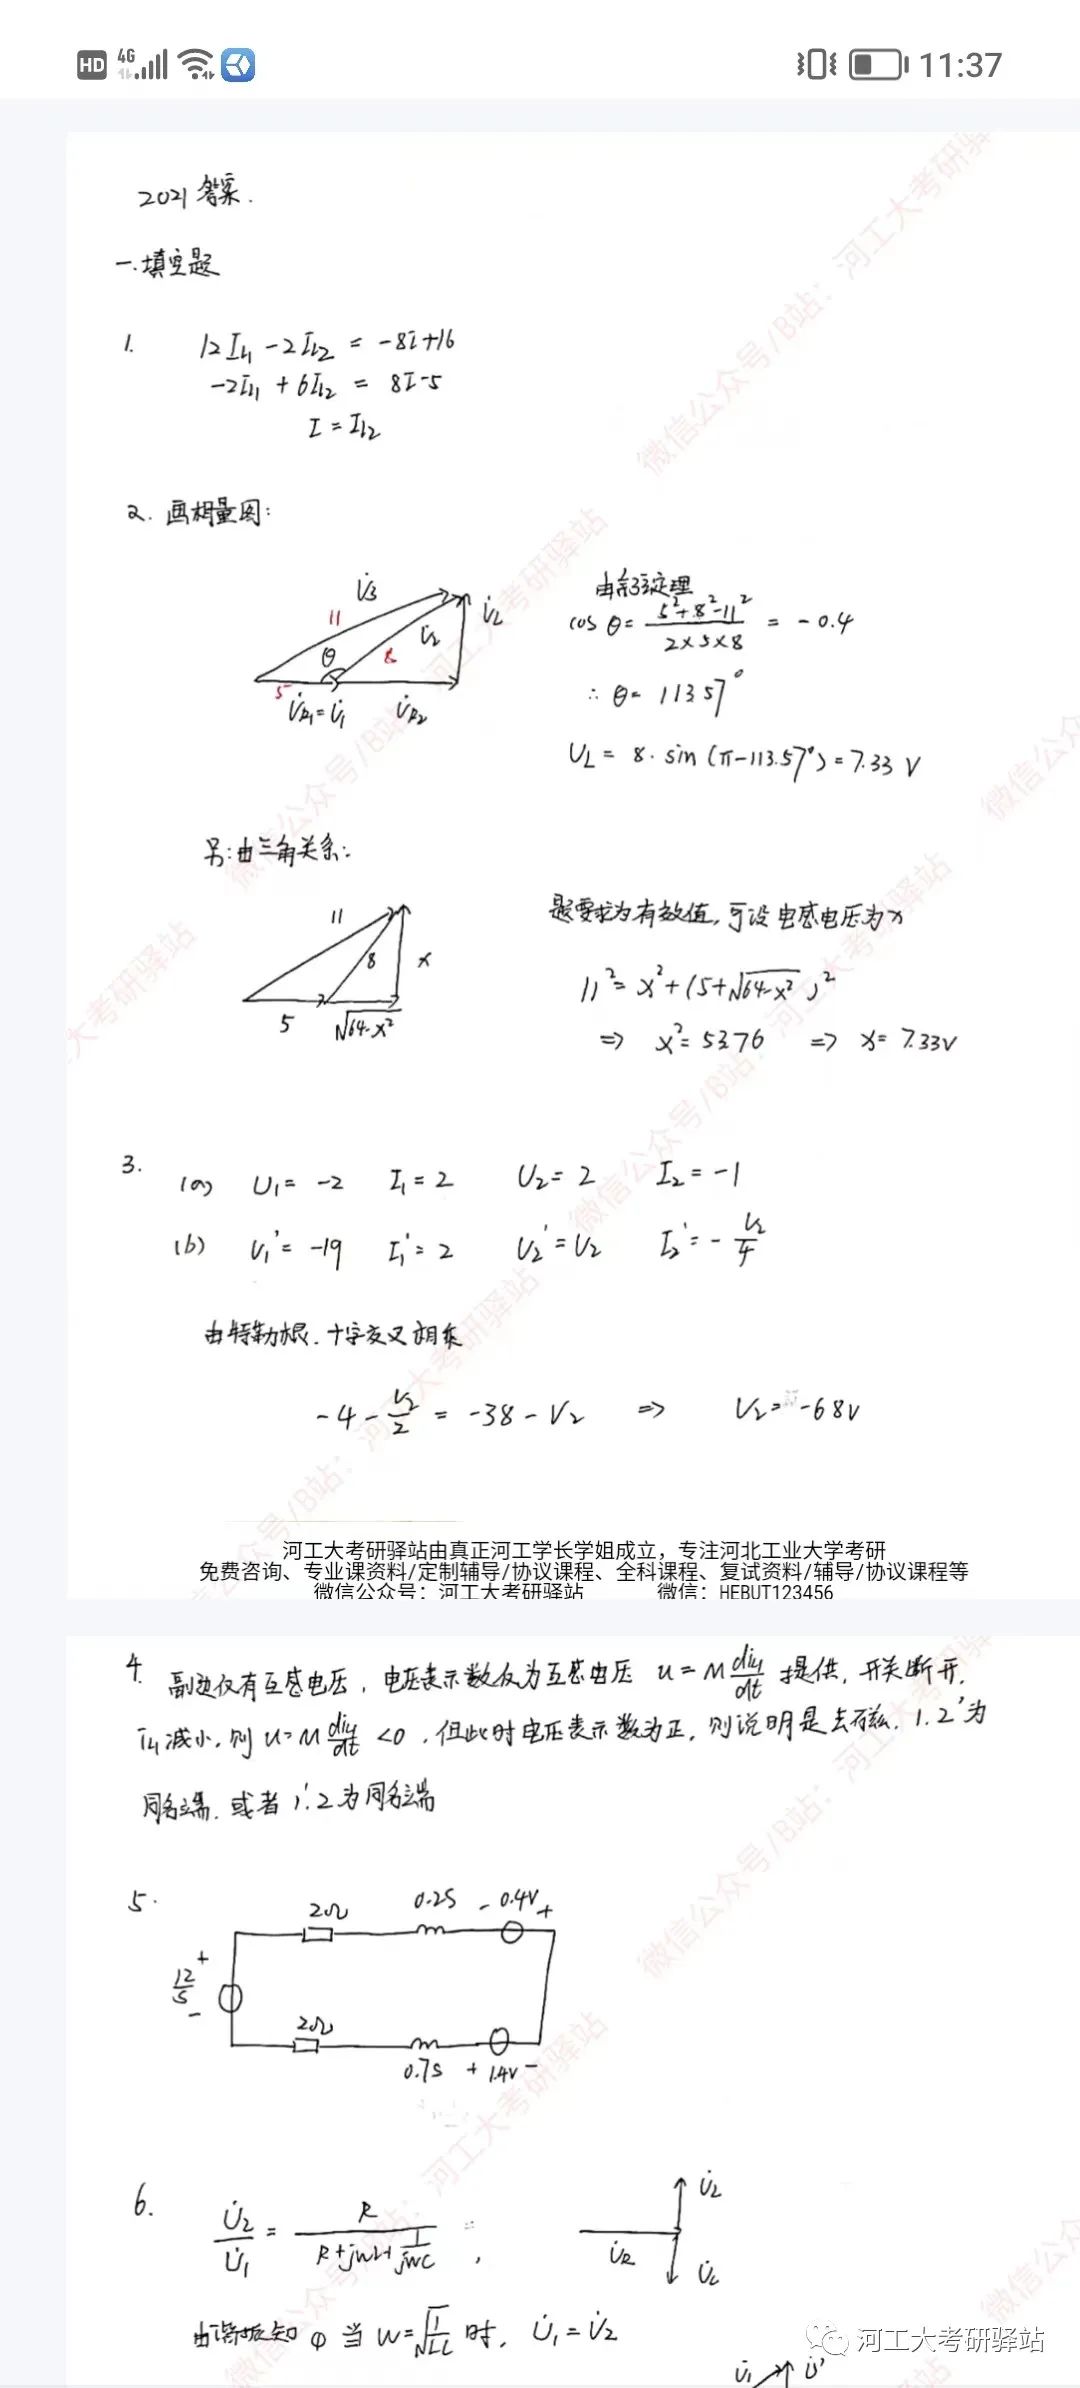 HD 4G 11:37
2021答案.
一.填空题
1. 12Il1 -2Il2 = -8I+16
-2Il1 + 6Il2 = 8I-5
I = Il2
2. 画相量图:
U̇3
11
U̇L
θ
U̇2
8
5
U̇R1=U̇1 U̇R2
由余弦定理
cos θ= (5²+8²-11²)/(2×5×8) = -0.4
∴ θ= 113.57°
UL = 8·sin(π-113.57°)=7.33 V
另:由三角关系:
11
8
x
5 √64-x²
题要求为有效值,可设电感电压为x
11²= x²+(5+√64-x²)²
=> x²= 53.76 => x= 7.33V
3. (a) U1= -2 I1= 2 U2= 2 I2= -1
(b) U1'= -19 I1'= 2 U2'=U2 I2'= - U2/4
由特勒根.十字交叉相乘
-4 - U2/2 = -38 - U2 => U2= -68V
河工大考研驿站由真正河工学长学姐成立，专注河北工业大学考研
免费咨询、专业课资料/定制辅导/协议课程、全科课程、复试资料/辅导/协议课程等
微信公众号：河工大考研驿站 微信：HEBUT123456
4. 副边仅有互感电压,电压表示数仅为互感电压 u=M di4/dt 提供,开关断开,
i4减小,则 u=M di4/dt <0 ,但此时电压表示数为正,则说明是去磁. 1.2'为
同名端.或者1'.2为同名端
5. 2Ω 0.2S - 0.4V +
12/S + -
2Ω
0.7S + 1.4V -
6. U̇2/U̇1 = R/(R+jωL+1/jωC) ,
U̇L
U̇R
U̇C
由谐振知 ① 当 ω=√1/LC 时, U̇1=U̇2
U̇1 U̇'
河工大考研驿站
微信公众号/B站：河工大考研驿站